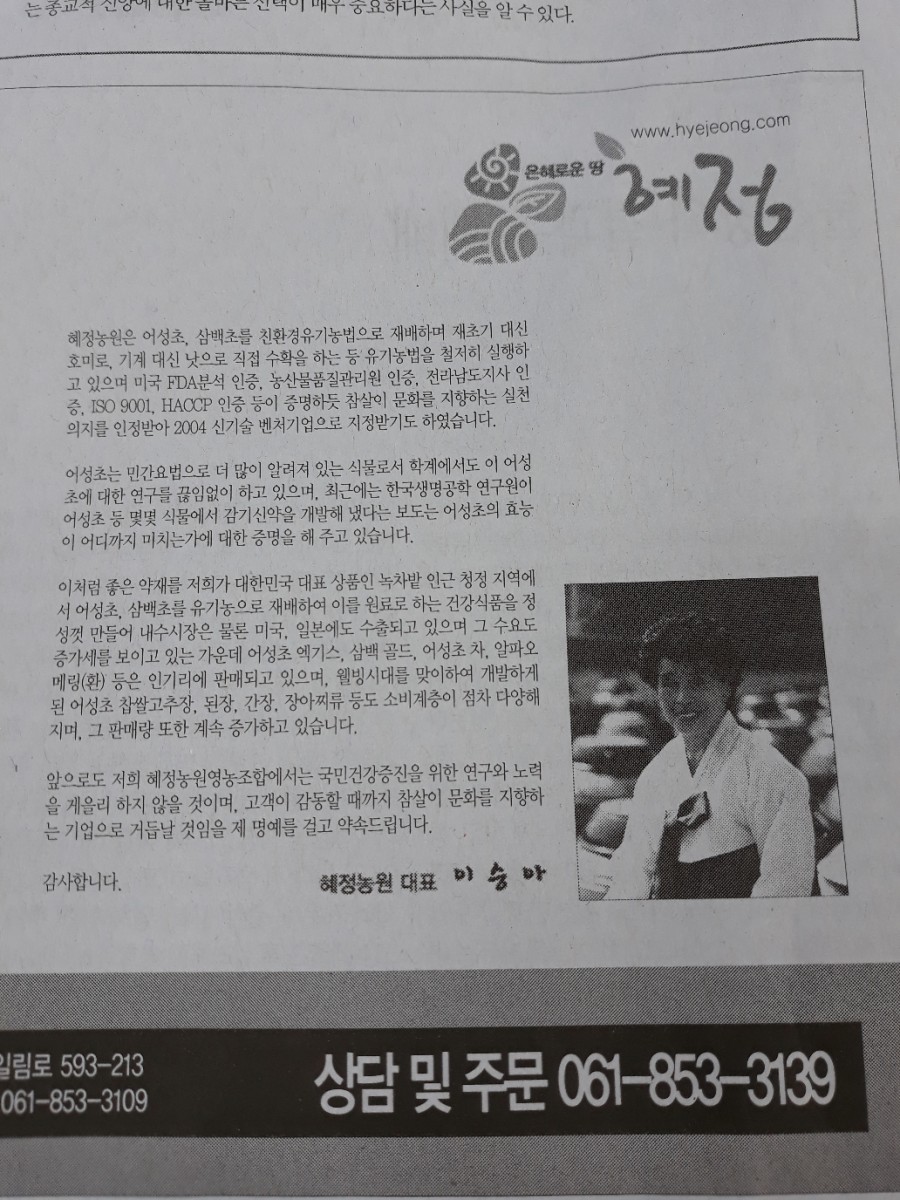 는 종교적 신앙에 대한 올바른 선택이 매우 중요하다는 사실을 알 수 있다.
www.hyejeong.com
은혜로운 땅 혜정
혜정농원은 어성초, 삼백초를 친환경유기농법으로 재배하며 재초기 대신
호미로, 기계 대신 낫으로 직접 수확을 하는 등 유기농법을 철저히 실행하
고 있으며 미국 FDA분석 인증, 농산물품질관리원 인증, 전라남도지사 인
증, ISO 9001, HACCP 인증 등이 증명하듯 참살이 문화를 지향하는 실천
의지를 인정받아 2004 신기술 벤처기업으로 지정받기도 하였습니다.
어성초는 민간요법으로 더 많이 알려져 있는 식물로서 학계에서도 이 어성
초에 대한 연구를 끊임없이 하고 있으며, 최근에는 한국생명공학 연구원이
어성초 등 몇몇 식물에서 감기신약을 개발해 냈다는 보도는 어성초의 효능
이 어디까지 미치는가에 대한 증명을 해 주고 있습니다.
이처럼 좋은 약재를 저희가 대한민국 대표 상품인 녹차밭 인근 청정 지역에
서 어성초, 삼백초를 유기농으로 재배하여 이를 원료로 하는 건강식품을 정
성껏 만들어 내수시장은 물론 미국, 일본에도 수출되고 있으며 그 수요도
증가세를 보이고 있는 가운데 어성초 엑기스, 삼백 골드, 어성초 차, 알파오
메링(環) 등은 인기리에 판매되고 있으며, 웰빙시대를 맞이하여 개발하게
된 어성초 찹쌀고추장, 된장, 간장, 장아찌류 등도 소비계층이 점차 다양해
지며, 그 판매량 또한 계속 증가하고 있습니다.
앞으로도 저희 혜정농원영농조합에서는 국민건강증진을 위한 연구와 노력
을 게을리 하지 않을 것이며, 고객이 감동할 때까지 참살이 문화를 지향하
는 기업으로 거듭날 것임을 제 명예를 걸고 약속드립니다.
감사합니다.
혜정농원 대표 이승아
일림로 593-213
061-853-3109
상담 및 주문 061-853-3139